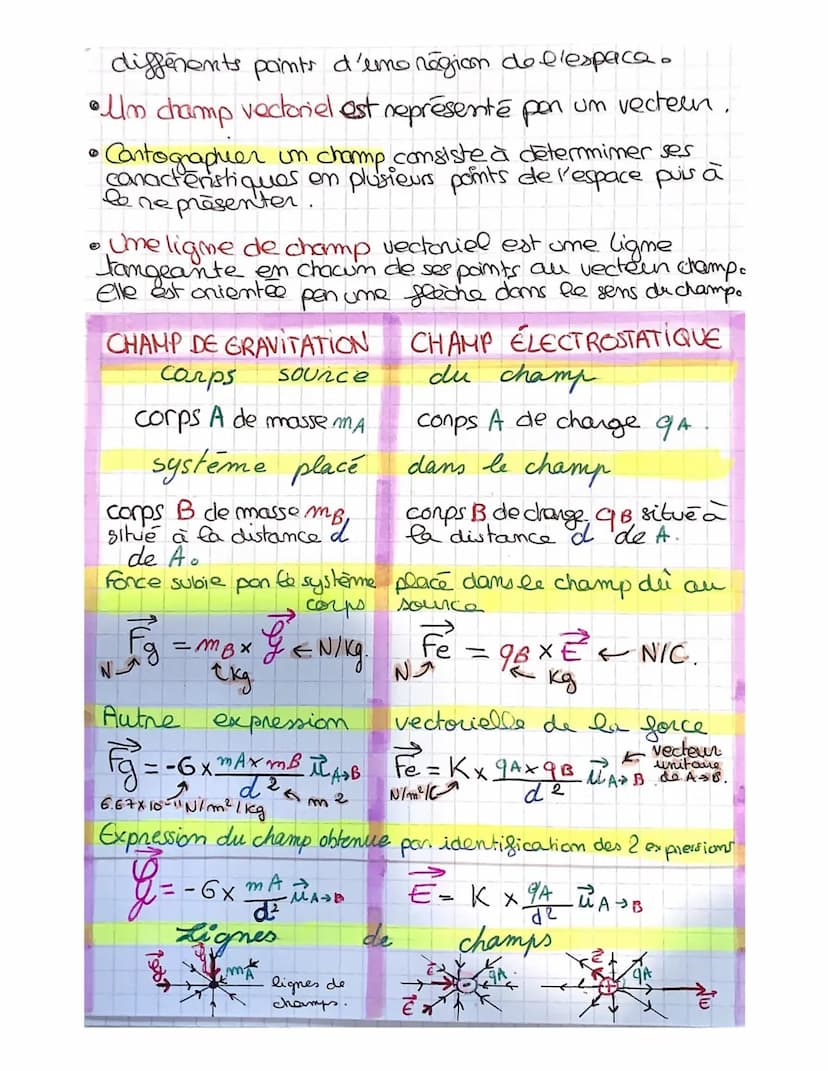 différents points d'une région de l'espace.
• Un champ vectoriel est représenté par un vecteur.
• Cartographier un champ consiste à déterminer ses
caractéristiques en plusieurs points de l'espace puis à
le représenter.
• Une ligne de champ vectoriel est une ligne
tangeante en chacun de ses points au vecteur champ.
Elle est orientée par une flèche dans le sens du champ.
CHAMP DE GRAVITATION CHAMP ÉLECTROSTATIQUE
corps source du champ
corps A de masse mA corps A de charge qA.
système placé dans le champ
corps B de masse mB, corps B de charge qB situé à
situé à la distance d la distance d de A.
de A.
Force subie par le système placé dans le champ dû au
corps source
Fg = mB × G ← N/kg. Fe = qB × E ← N/C.
N kg N kg
Autre expression vectorielle de la force
Fg = -G × mA × mB / d² u A→B Fe = K × qA × qB / d² u A→B ← vecteur unitaire de A→B.
6.67×10⁻¹¹ N/m²/kg m² N/m²/C
Expression du champ obtenue par identification des 2 expressions
G = -G × mA / d² u A→B E = K × qA / d² u A→B
Lignes de champs
G G mA lignes de champs. E E - qA E + qA E